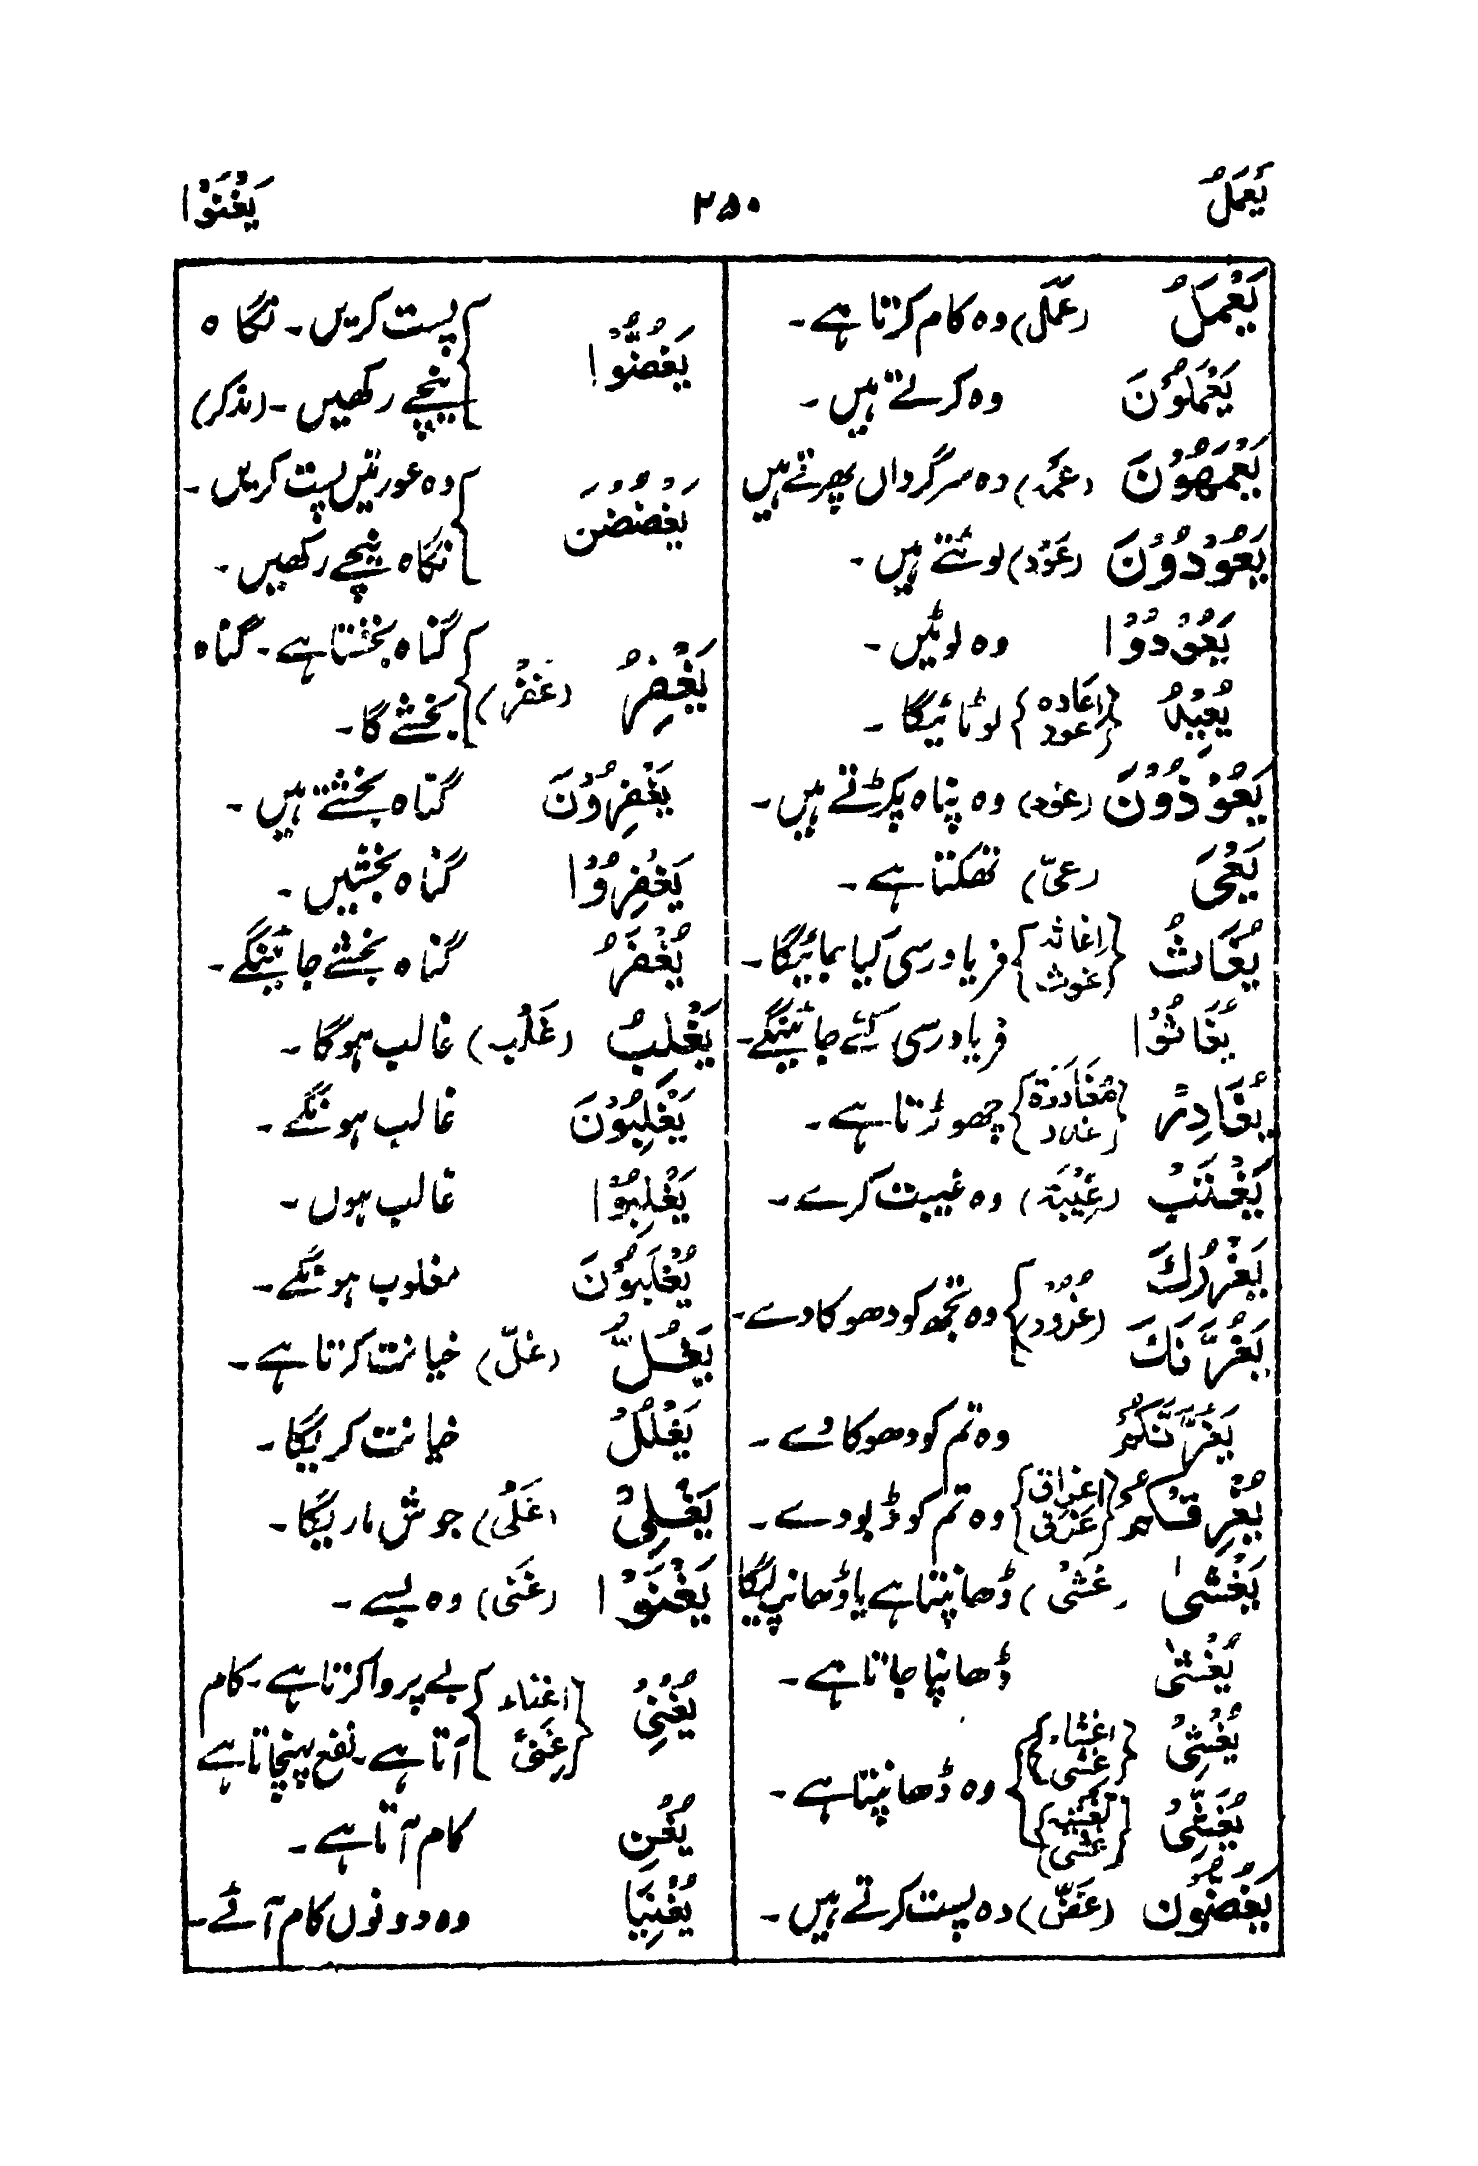 يَعْمَلُ ۲۵۰ يَغْنَوْا
يَعْمَلُ (عَمَل) وہ کام کرتا ہے۔
يَعْمَلُوْنَ وہ کرتے ہیں۔
يَعْمَهُوْنَ (عَمَه) وہ سرگرداں پھرتے ہیں
يَعُوْدُوْنَ (عَوْد) لوٹتے ہیں۔
يَعُوْدُوْا وہ لوٹیں۔
يُعِيْدُ {اعادہ عود} لوٹائیگا۔
يَعُوْذُوْنَ (عوذ) وہ پناہ پکڑتے ہیں۔
يَعْىَ (عیّ) تھکتا ہے۔
يُغَاثُ {اغاثہ غوث} فریاد رسی کیا جائیگا۔
يُغَاثُوْا فریاد رسی کئے جائینگے۔
يُغَادِرُ {مُغَادَرَة غدر} چھوڑتا ہے۔
يَغْتَبْ (غِيْبَة) وہ غیبت کرے۔
يَغْرُرْكَ
يَغُرَّنَّكَ (غُرُوْر) وہ تجھ کو دھوکا دے۔
يَغُرَّنَّكُمْ وہ تم کو دھوکا دے۔
يُغْرِقَكُمْ {اغراق غرق} وہ تم کو ڈبو دے۔
يَغْشٰى (غَشْى) ڈھانپتا ہے یا ڈھانپ لیگا
يُغْشٰى ڈھانپا جاتا ہے۔
يُغْشِىْ {اغشاء غشی}
يُغَشِّىْ {تغشیہ غشی} وہ ڈھانپتا ہے۔
يَغُضُّوْنَ (غَضّ) وہ پست کرتے ہیں۔
يَغُضُّوْا پست کریں۔ نگاہ
نیچے رکھیں۔ (مذکر)
يَغْضُضْنَ وہ عورتیں پست کریں۔
نگاہ نیچے رکھیں۔
يَغْفِرُ (غَفْر) گناہ بخشتا ہے۔ گناہ
بخشے گا۔
يَغْفِرُوْنَ گناہ بخشتے ہیں۔
يَغْفِرُوْا گناہ بخشیں۔
يُغْفَرُ گناہ بخشے جائینگے۔
يَغْلِبُ (غَلَب) غالب ہوگا۔
يَغْلِبُوْنَ غالب ہونگے۔
يَغْلِبُوْا غالب ہوں۔
يُغْلَبُوْنَ مغلوب ہونگے۔
يَغُلُّ (غلّ) خیانت کرتا ہے۔
يَغْلُلْ خیانت کریگا۔
يَغْلِىْ (غَلْى) جوش ماریگا۔
يَغْنَوْا (غَنَى) وہ بسے۔
يُغْنِىْ {اغناء غِنًى} بے پروا کرتا ہے۔ کام
آتا ہے۔ نفع پہنچاتا ہے
يُغْنِ کام آتا ہے۔
يُغْنِيَا وہ دونوں کام آئے۔